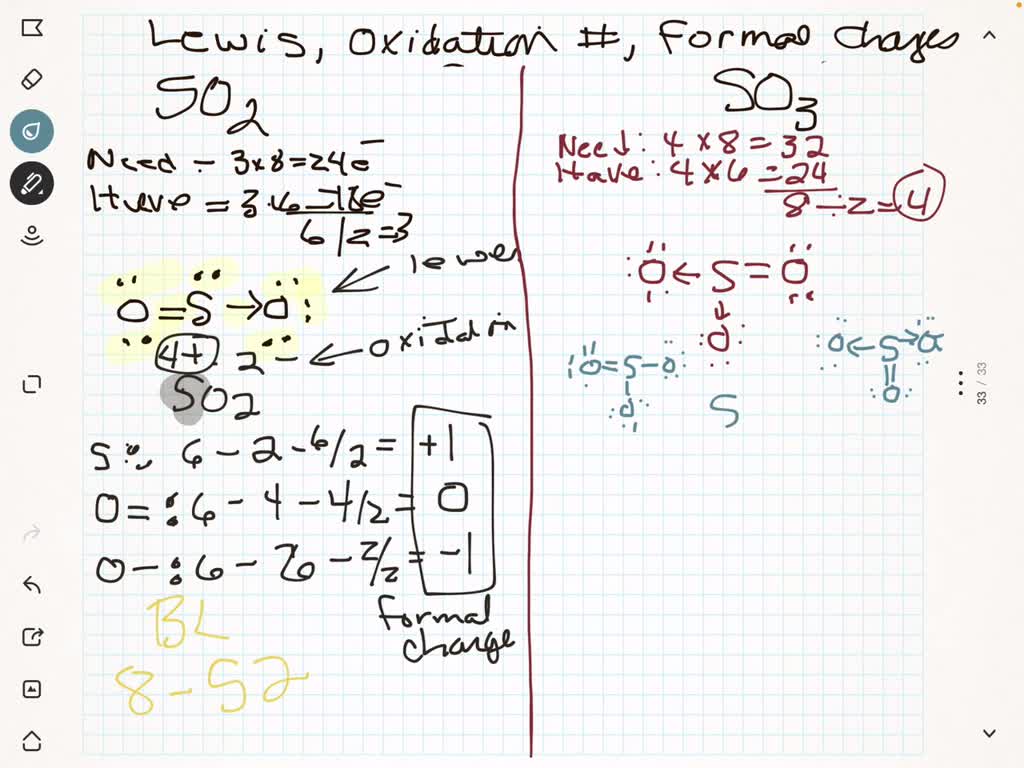 Lewis, Oxidation #, Formal Charges
SO2
Need - 3x8=24e-
Have = 3.6 = 18e-
6/2=3
lewis
O=S→O:
4+ 2-
oxidation
SO2
S: 6-2-6/2= +1
O=: 6-4-4/2= 0
O-: 6-6-2/2= -1
formal
charge
BL
8-52
SO3
Need: 4x8=32
Have: 4x6=24
8÷2=4
:O←S=O
↓
:O:
O=S-O:
:O:
S
:O←S→O
||
O
33 / 33